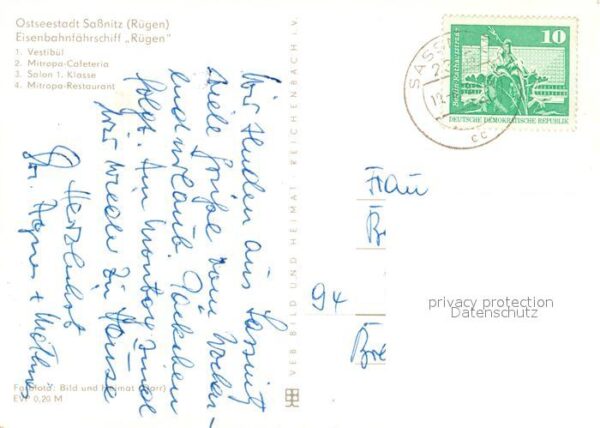 Ostseestadt Saßnitz (Rügen)
Eisenbahnfährschiff „Rügen"
1. Vestibül
2. Mitropa-Cafeteria
3. Salon 1. Klasse
4. Mitropa-Restaurant
Wir senden aus Sassnitz
viele Grüße vom Wochen-
endurlaub. Päckchen
folgt. Am Montag sind
wir wieder zu Hause
Herzlichst
Agnes + 
Farbfoto: Bild und Heimat
EVP 0,20 M
VEB BILD UND HEIMAT REICHENBACH i. V.
SASS
10
Berlin, Rathausstraße
DEUTSCHE DEMOKRATISCHE REPUBLIK
cc
Frau
94
privacy protection
Datenschutz